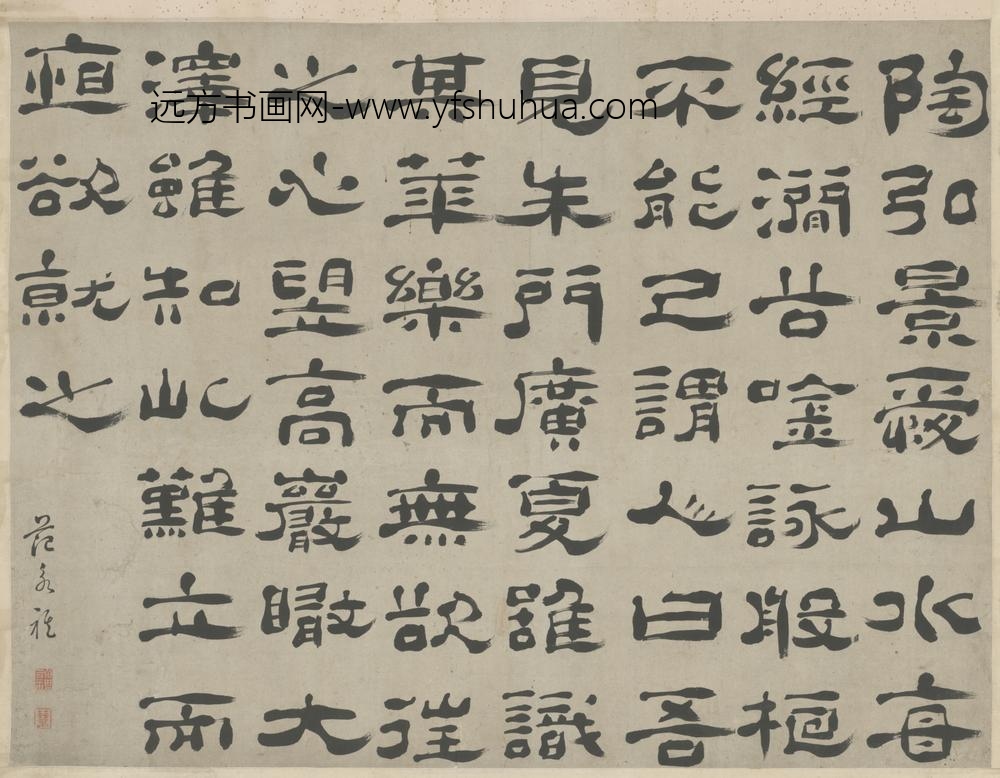 陶弘景愛山水每
經澗谷唫詠般桓
不能已謂人曰吾
見朱門廣夏雖識
其華樂而無欲往
之心望高巖瞰大
澤雖知此難立而
恒欲就之
范永祺
远方书画网-www.yfshuhua.com